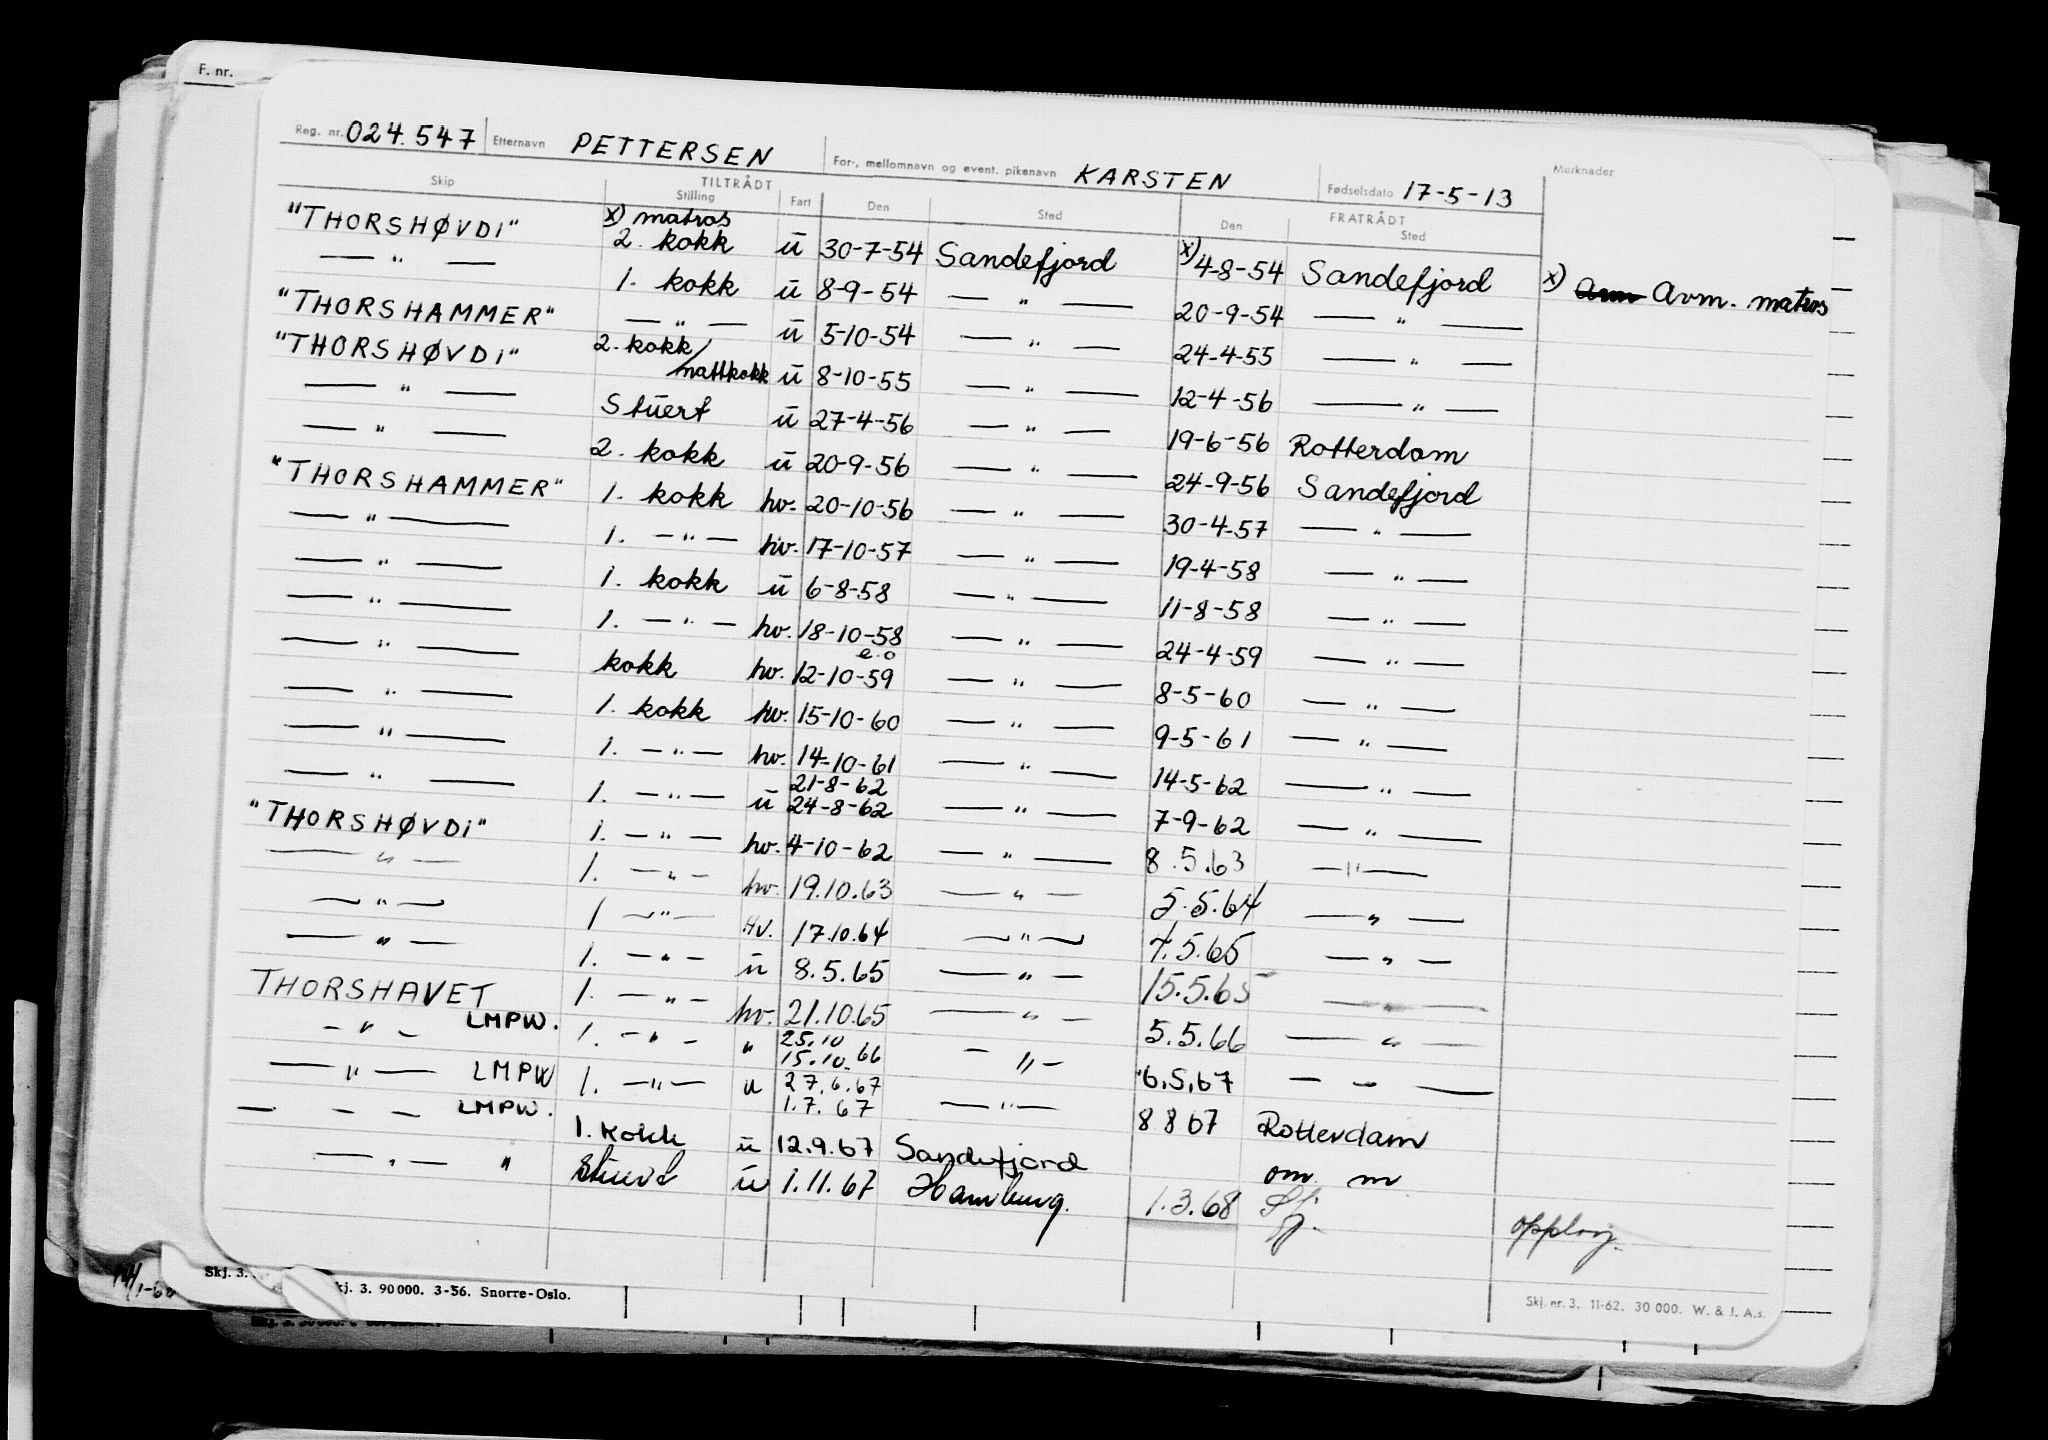 F. nr.
Reg. nr. 024.547 Etternavn PETTERSEN For-, mellomnavn og event. pikenavn KARSTEN Fødselsdato 17-5-13 Merknader
Skip TILTRÅDT Stilling Fart Den Sted FRATRÅDT Den Sted
x) matros
"THORSHØVDI" 2. kokk ū 30-7-54 Sandefjord x) 4-8-54 Sandefjord x) Avm. matros
— " — 1. kokk ū 8-9-54 — " — 20-9-54 — " —
"THORSHAMMER" — " — ū 5-10-54 — " — 24-4-55 — " —
"THORSHØVDI" 2. kokk/nattkokk ū 8-10-55 — " — 12-4-56 — " —
— " — Stūert ū 27-4-56 — " — 19-6-56 Rotterdam
— " — 2. kokk ū 20-9-56 — " — 24-9-56 Sandefjord
"THORSHAMMER" 1. kokk hv. 20-10-56 — " — 30-4-57 — " —
— " — 1. — " — hv. 17-10-57 — " — 19-4-58 — " —
— " — 1. kokk ū 6-8-58 — " — 11-8-58 — " —
— " — 1. — " — hv. 18-10-58 — " — 24-4-59 — " —
e.o
— " — kokk hv. 12-10-59 — " — 8-5-60 — " —
— " — 1. kokk hv. 15-10-60 — " — 9-5-61 — " —
— " — 1. — " — hv. 14-10-61 — " — 14-5-62 — " —
21-8-62
— " — 1. — " — ū 24-8-62 — " — 7-9-62 — " —
"THORSHØVDI" 1. — " — hv. 4-10-62 — " — 8.5.63 — " —
— " — 1. — " — hv. 19.10.63 — " — 5.5.64 — " —
— " — 1 — " — Hv. 17.10.64 — " — 4.5.65 — " —
— " — 1. — " — ū 8.5.65 — " — 15.5.65 — " —
THORSHAVET 1. — " — hv. 21.10.65 — " — 5.5.66 — " —
LMPW.
25.10
— " — 1. — " — " 15.10.66 — " — 6.5.67 — " —
27.6.67
— " — LMPW 1. — " — u 1.7.67 — " — 8 8 67 Rotterdam
— — — LMPW. 1. kokk ū 12.9.67 Sandefjord om. m
— " — " Stuert ū 1.11.67 Hamburg. 1.3.68 Sfj. opplag.
Skj. 3. kj. 3. 90 000. 3-56. Snorre-Oslo.
Skj. nr. 3. 11-62. 30 000. W. & J. A.s.